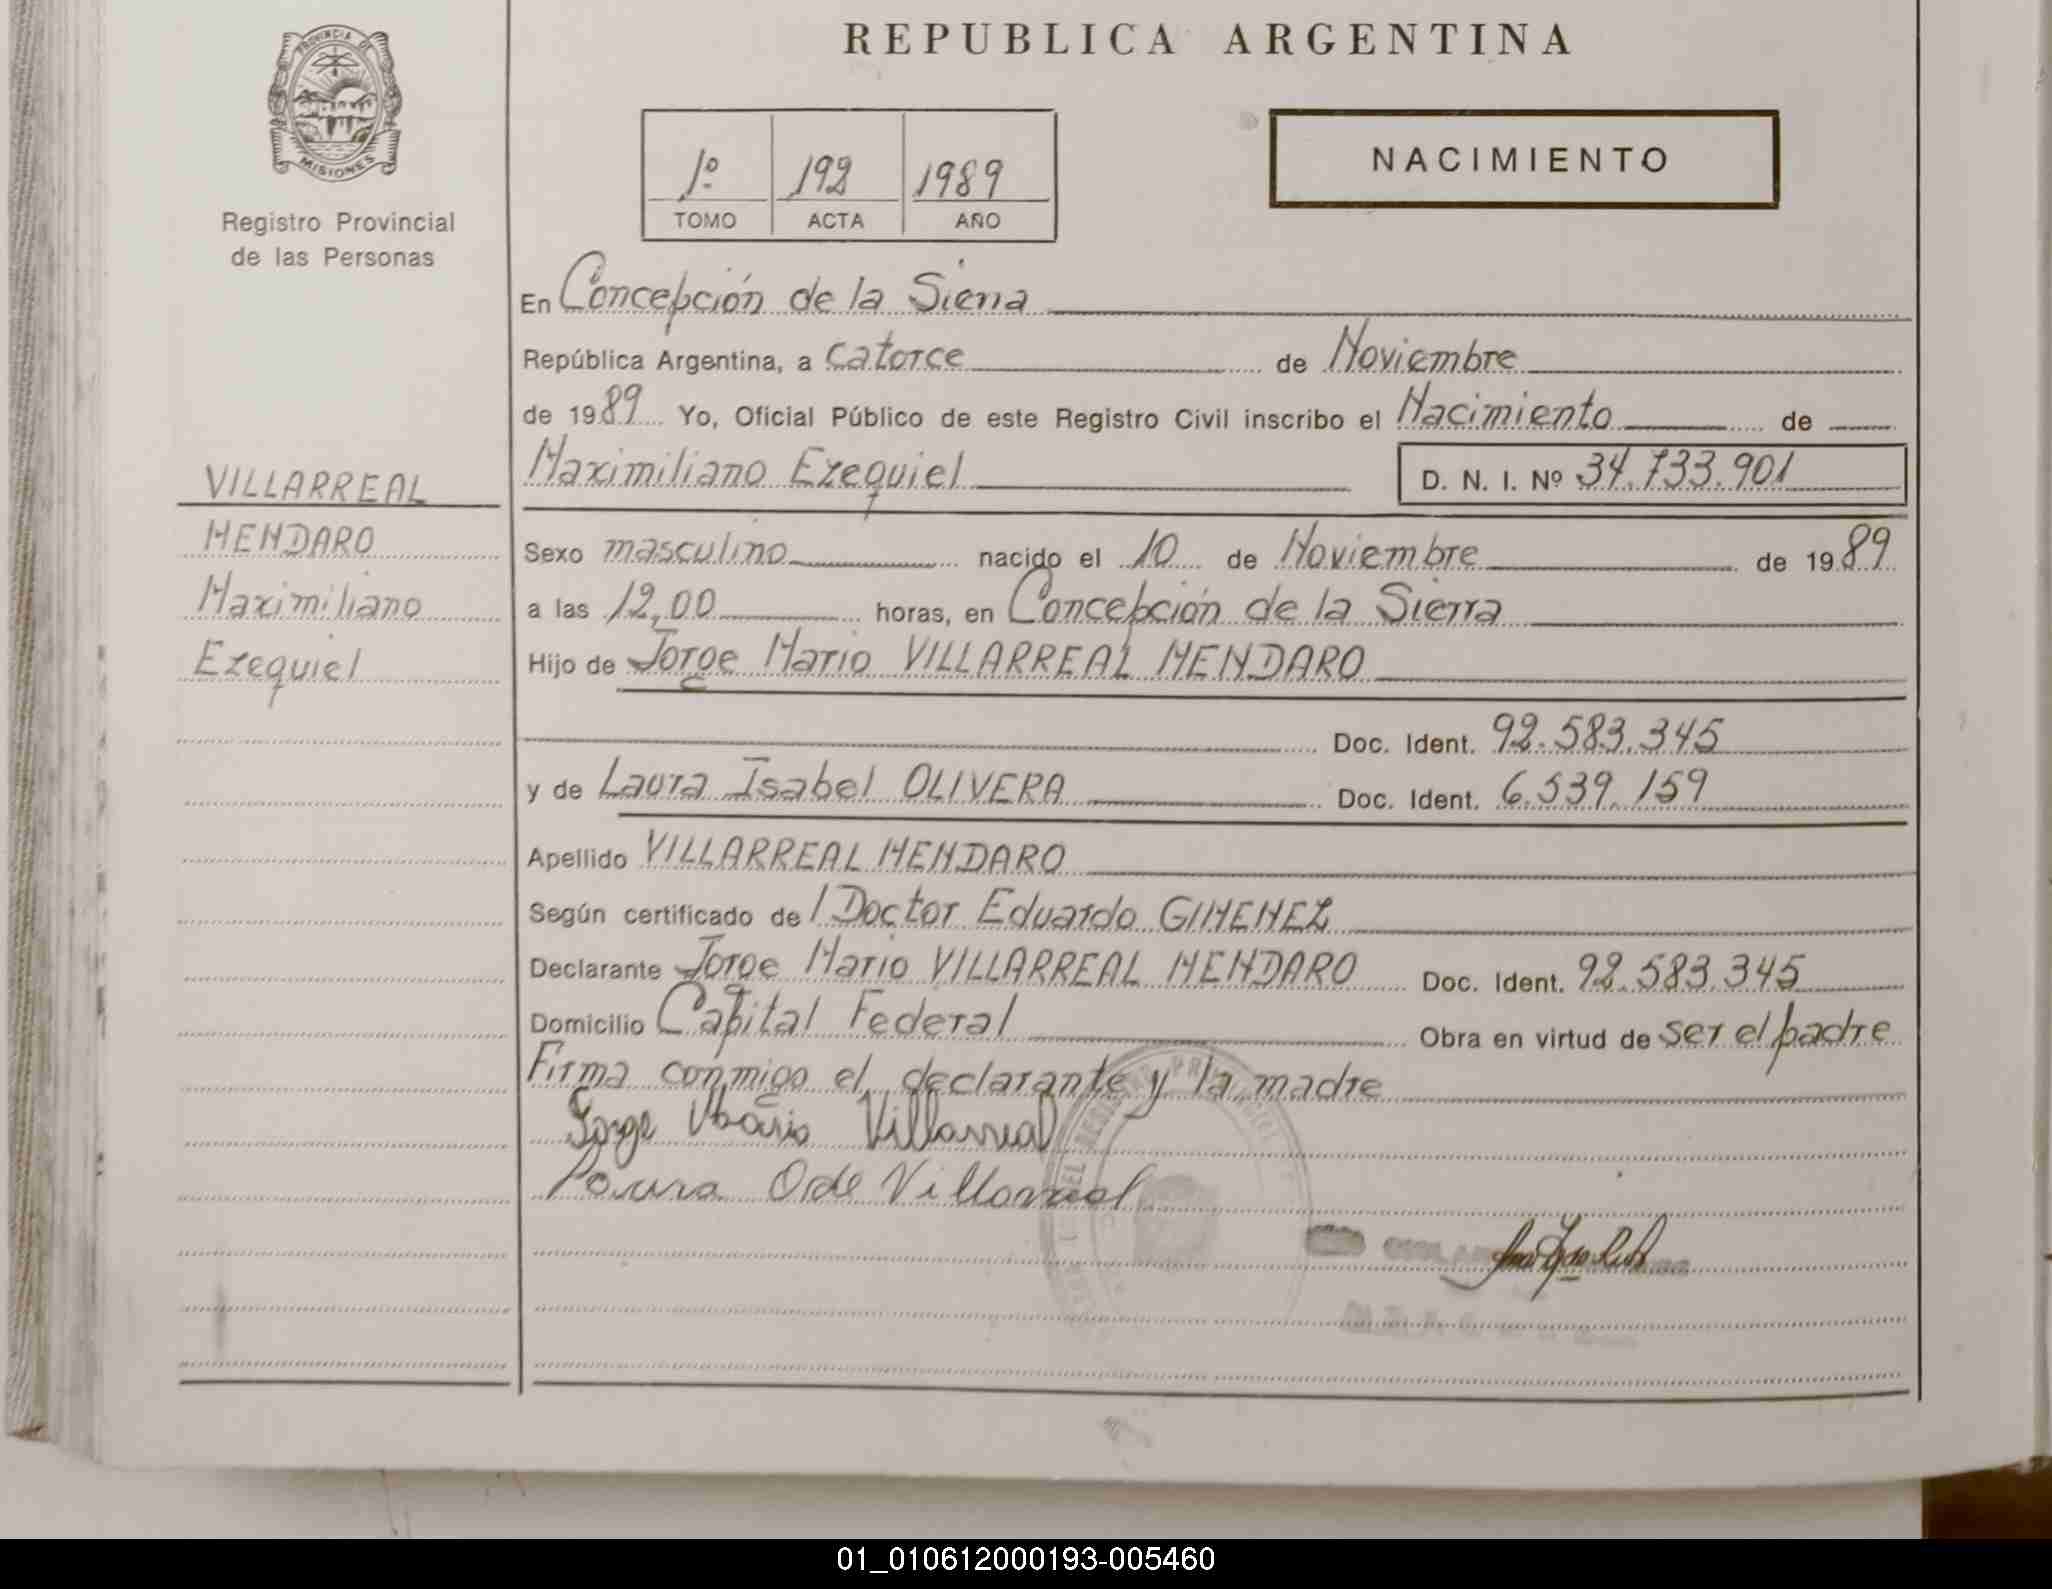 REPUBLICA ARGENTINA
PROVINCIA DE
MISIONES
Registro Provincial
de las Personas
1º 192 1989
TOMO ACTA AÑO
NACIMIENTO
En Concepción de la Sierra
República Argentina, a catorce de Noviembre
de 1989 Yo, Oficial Público de este Registro Civil inscribo el Nacimiento de
Maximiliano Ezequiel D. N. I. Nº 34.733.901
VILLARREAL
MENDARO
Maximiliano
Ezequiel
Sexo masculino nacido el 10 de Noviembre de 1989
a las 12,00 horas, en Concepción de la Sierra
Hijo de Jorge Mario VILLARREAL MENDARO
Doc. Ident. 92.583.345
y de Laura Isabel OLIVERA Doc. Ident. 6.539.159
Apellido VILLARREAL MENDARO
Según certificado de l Doctor Eduardo GIMENEZ
Declarante Jorge Mario VILLARREAL MENDARO Doc. Ident. 92.583.345
Domicilio Capital Federal Obra en virtud de ser el padre
Firma conmigo el declarante y la madre
Jorge Mario Villarreal
Laura O de Villarreal
01_010612000193-005460